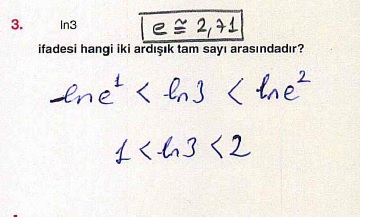 3. ln3 e ≅ 2,71
ifadesi hangi iki ardışık tam sayı arasındadır?
lne¹ < ln3 < lne²
1 < ln3 < 2